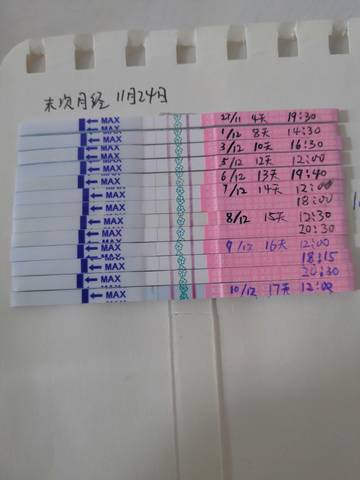 末次月经 11月24日
← MAX 27/11 4天 19:30
← MAX 1/12 8天 14:30
← MAX 3/12 10天 16:30
← MAX 5/12 12天 12:00
← MAX 6/12 13天 19:40
← MAX 7/12 14天 12:00
← MAX 18:00
← MAX 8/12 15天 12:30
← MAX 20:30
← MAX 9/12 16天 12:00
← MAX 18:15
← MAX 20:30
← MAX 10/12 17天 12:00